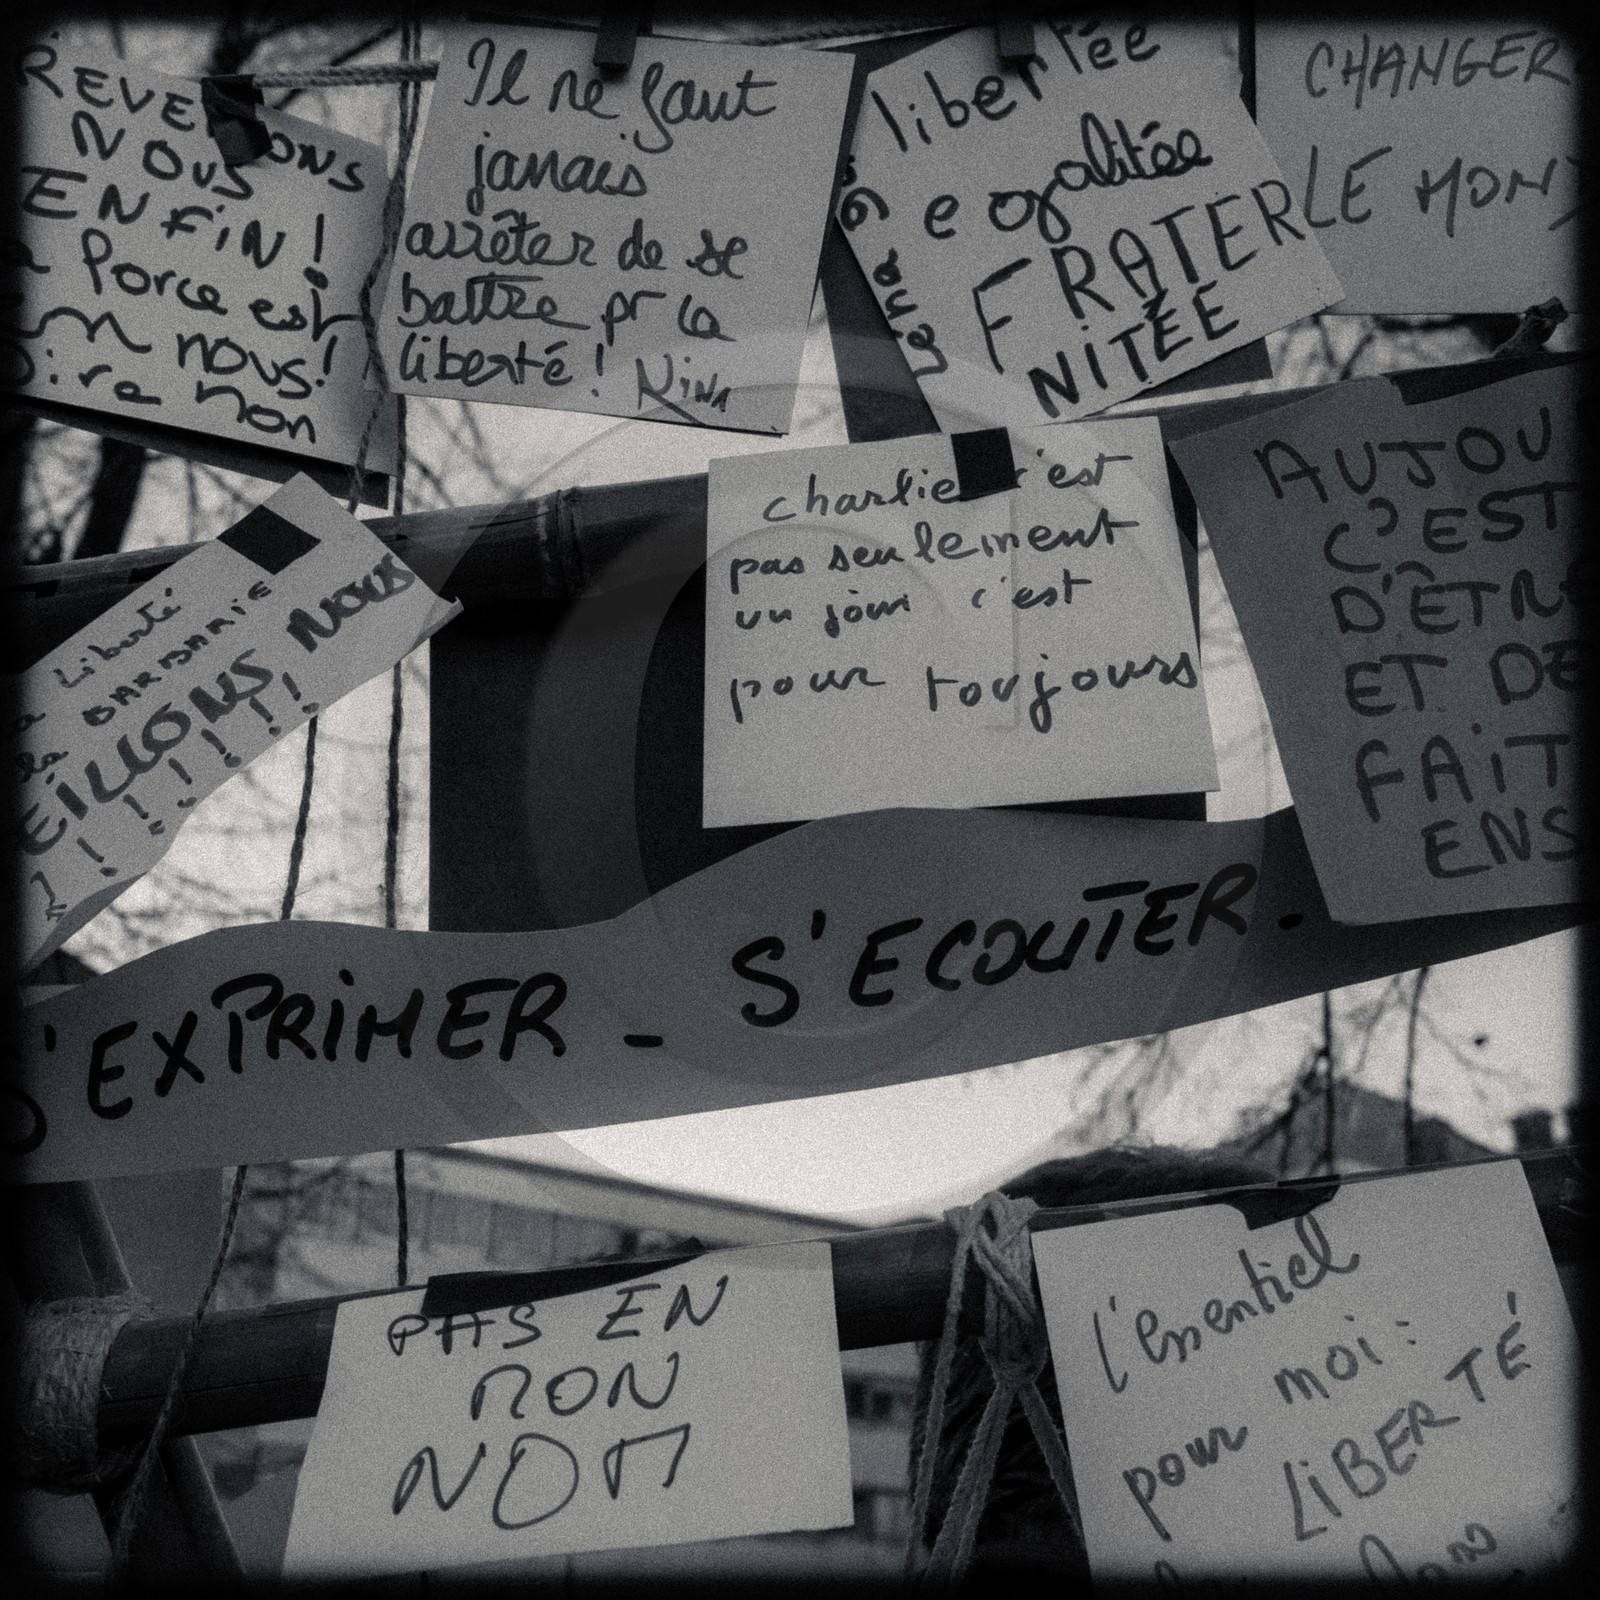 REVEILLONS
NOUS
ENFIN!
La force est
en nous!
Dire non
Il ne faut
jamais
arrêter de se
battre pr la
liberté! Nina
libertée
egalitée
FRATER
NITÉE
CHANGER
LE MON
charlie c'est
pas seulement
un jour c'est
pour toujours
AUJOU
C'EST
D'ÊTR
ET DE
FAIT
ENS
Liberté
la BARBARIE
EILLONS NOUS
! ! ! ! ! !
S'EXPRIMER - S'ECOUTER -
PAS EN
MON
NOM
l'essentiel
pour moi:
pour
LIBERTÉ